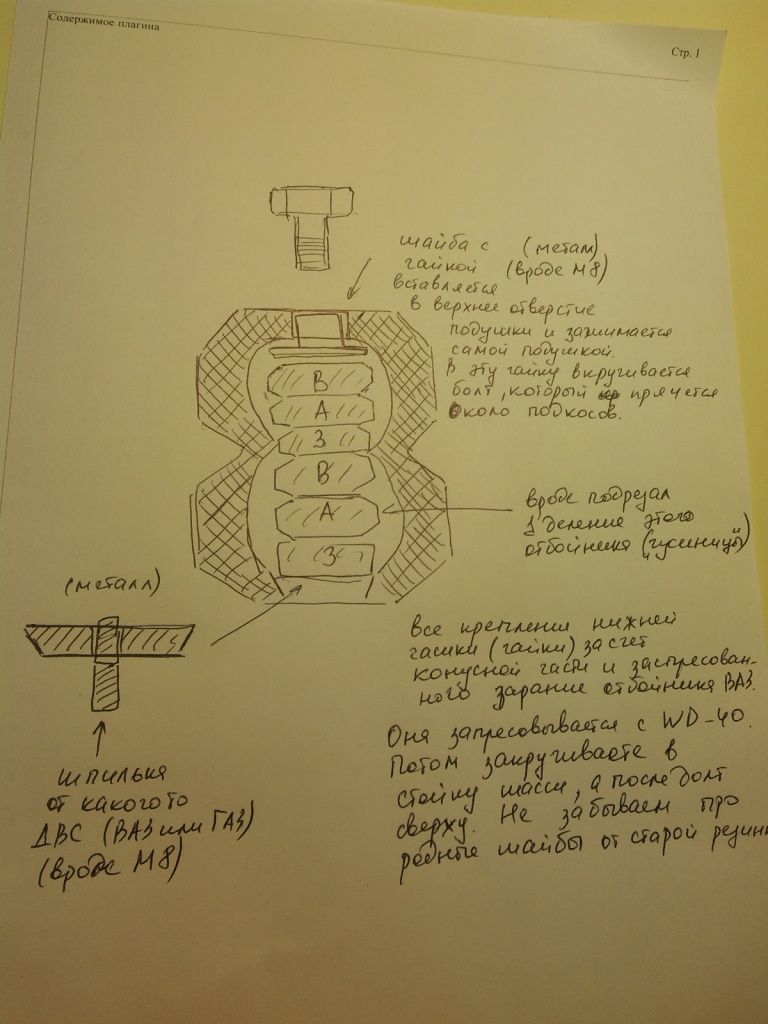 Содержимое плагина
Стр. 1
шайба с (метал)
гайкой (вроде М8)
вставляется
в верхнее отверстие
подушки и зажимается
самой подушкой.
В эту гайку вкручивается
болт, который прячется
около подкосов.
В
А
З
В
А
З
вроде подрезал
1 деление этого
отбойника ("гусеницы")
(металл)
шпилька
от какого то
ДВС (ВАЗ или ГАЗ)
(вроде М8)
Все крепление нижней
(гайки) за счет
конусной и запресован-
ного зарание отбойника ВАЗ.
Оня запресовывается с WD-40.
Потом закручиваете в
стойку шасси, а после болт
сверху. Не забываем про
родные шайбы от старой резин